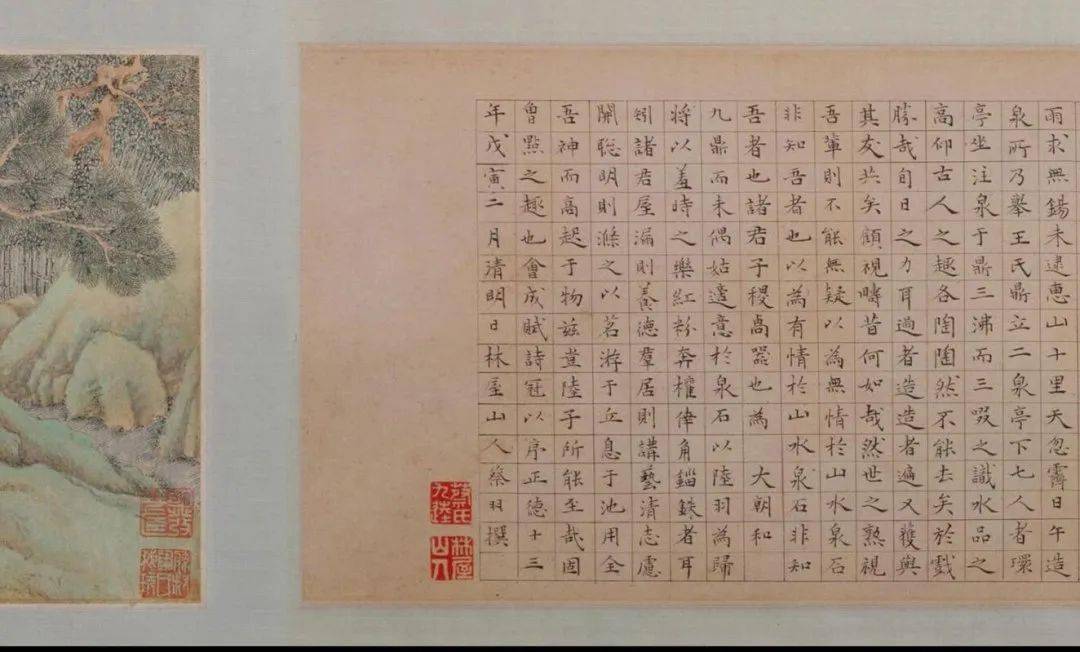 雨求無錫未逮惠山十里天忽霽日午造
泉所乃舉王氏鼎立二泉亭下七人者環
亭坐注泉于鼎三沸而三啜之識水品之
高仰古人之趣各陶陶然不能去矣於戲
勝哉旬日之力耳過者造造者遍又獲與
其友共矣顧視疇昔何如哉然世之熟視
吾輩則不能無疑以為無情於山水泉石
非知吾者也以為有情於山水泉石非知
吾者也諸君子稷卨器也為 大朝和
九鼎而未偶姑遣意於泉石以陸羽為歸
將以羞時之樂紅粉奔權倖角錙銖者耳
矧諸君屋漏則養德羣居則講藝清志慮
開聰明則滌之以茗游于丘息于池用全
吾神而高起于物兹豈陸子所能至哉固
曾點之趣也會成賦詩冠以序正德十三
年戊寅二月清明日林屋山人蔡羽撰
蔡氏九逵
林屋山人